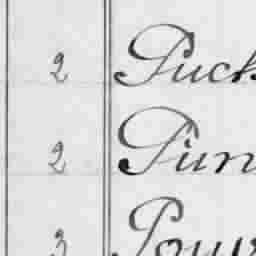 2 Puck
2 Pin
3 Pouv